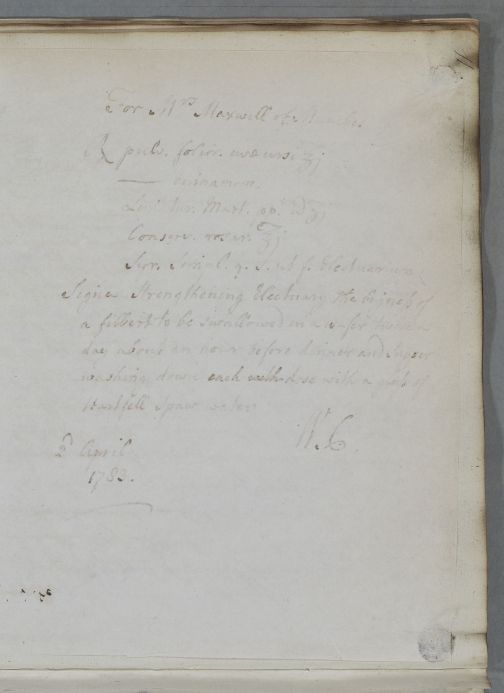 For Mrs Maxwell of
℞ pulv. folior. uvæ ursi ʒj
—— cinnamom.
Mart. ʒj
Conserv. rosar. ℥j
Syrr. Simpl. q. s. ut f. Electuarium
Signa Strengthening Electuary the bigness of
a filbert to be swallowed in a wafer twice a
day about an hour before dinner and supper
washing down each with dose with a gill of
Hartfell Spaw water
Wm C.
2d April
1783.